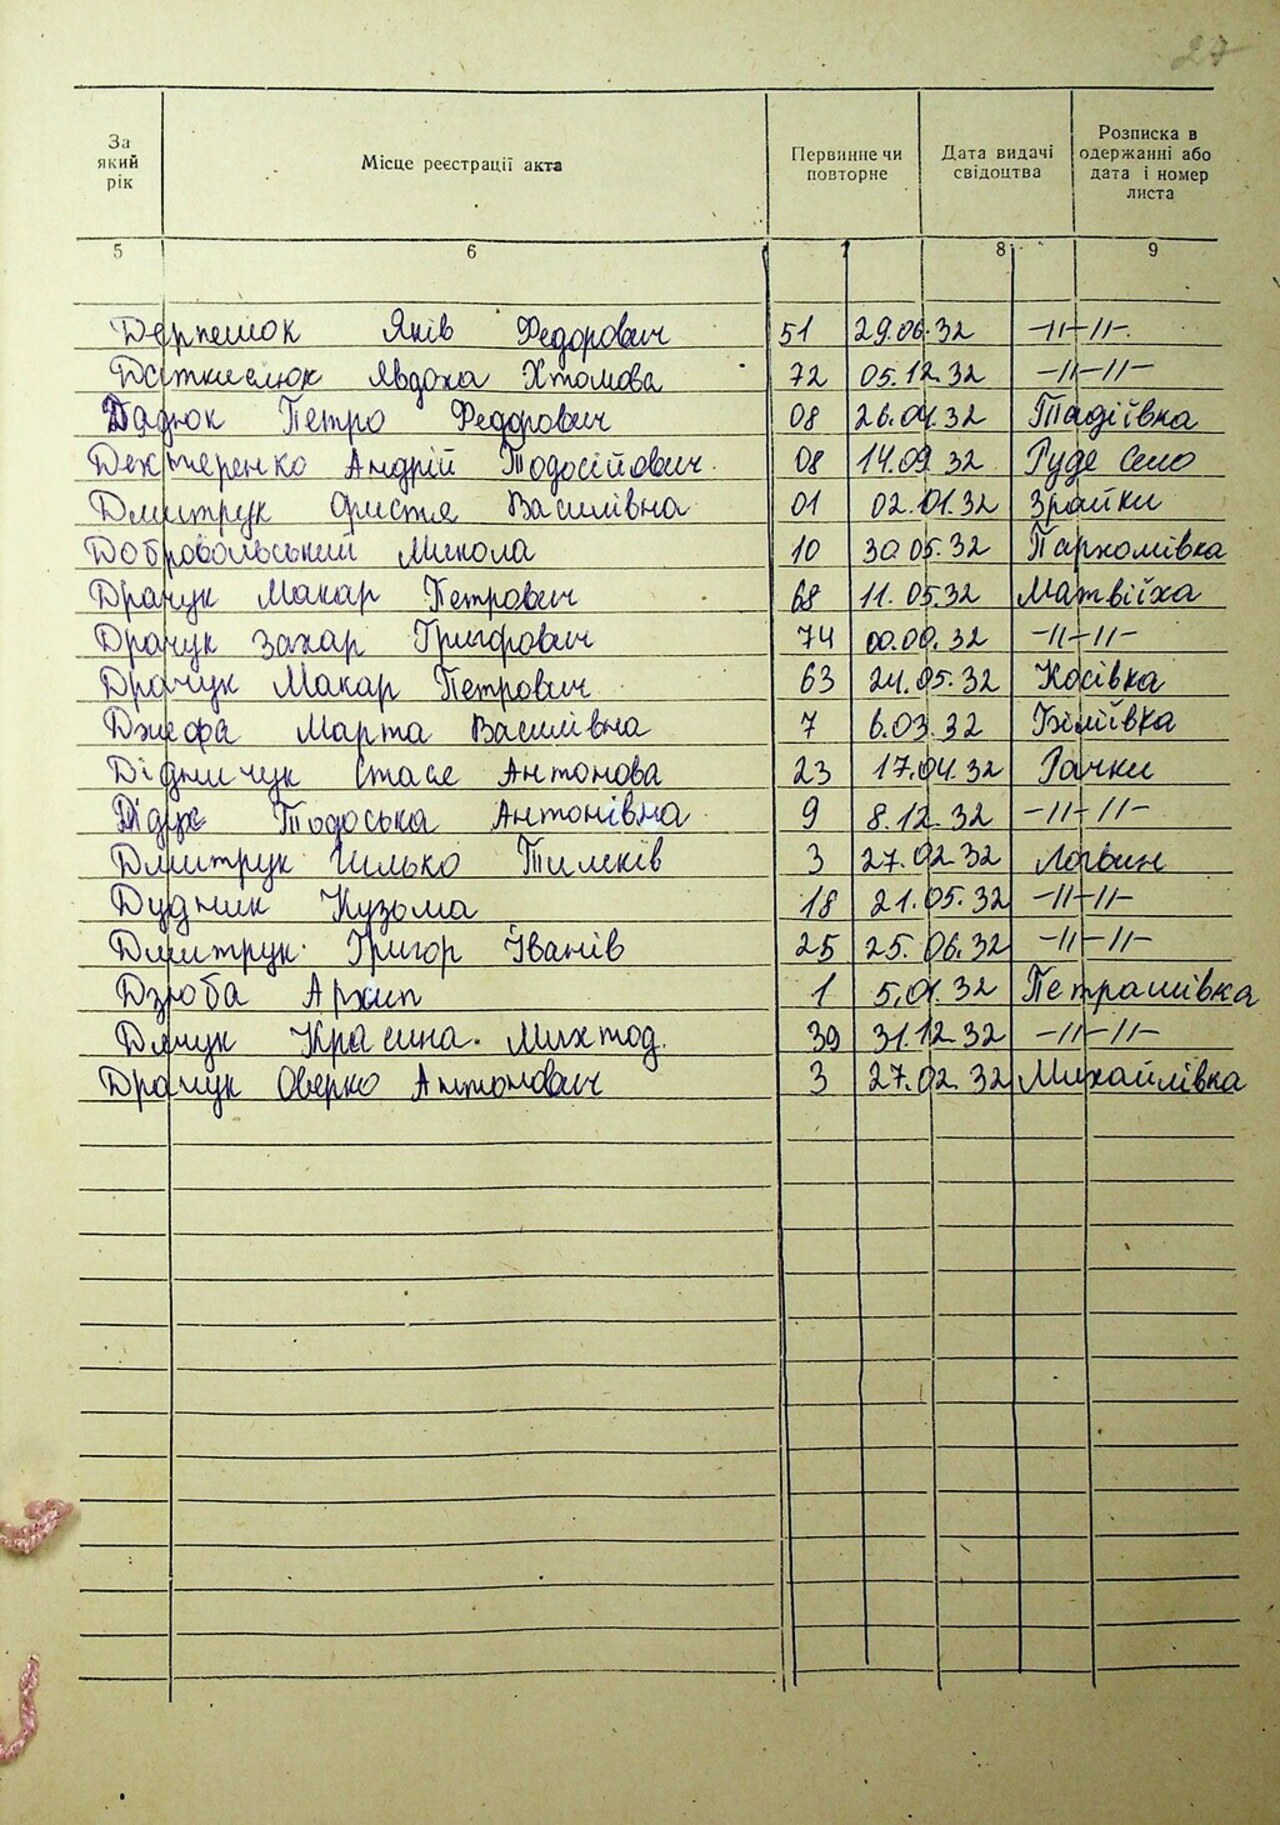 27
За який рік
Місце реєстрації акта
Первинне чи повторне
Дата видачі свідоцтва
Розписка в одержанні або дата і номер листа
5 6 7 8 9
Яків Федорович 51 29.06.32 -//-//-
Явдоха Хтомова 72 05.12.32 -//-//-
Дядюк Петро Федорович 08 26.04.32 Тадіївка
Дехтеренко Андрій Тодосійович 08 14.09.32 Руде Село
Дмитрук Фистя Василівна 01 02.01.32 Зрайки
Добровольський Микола 10 30.05.32 Пархомівка
Драчук Макар Петрович 68 11.05.32 Матвіїха
Драчук Захар Григорович 74 00.00.32 -//-//-
Драчук Макар Петрович 63 24.05.32 Косівка
Джефа Марта Василівна 7 6.03.32 Біліївка
Дідничук Стася Антонова 23 17.04.32 Рачки
Тодоська Антонівна 9 8.12.32 -//-//-
Дмитрук Ілько Тимків 3 27.02.32 Логвин
Дудник Кузьма 18 21.05.32 -//-//-
Дмитрук Григор Іванів 25 25.06.32 -//-//-
Дзюба Архип 1 5.01.32 Петрашівка
Дячук Красина Михтод. 39 31.12.32 -//-//-
Драчук Оверко Антонович 3 27.02.32 Михайлівка